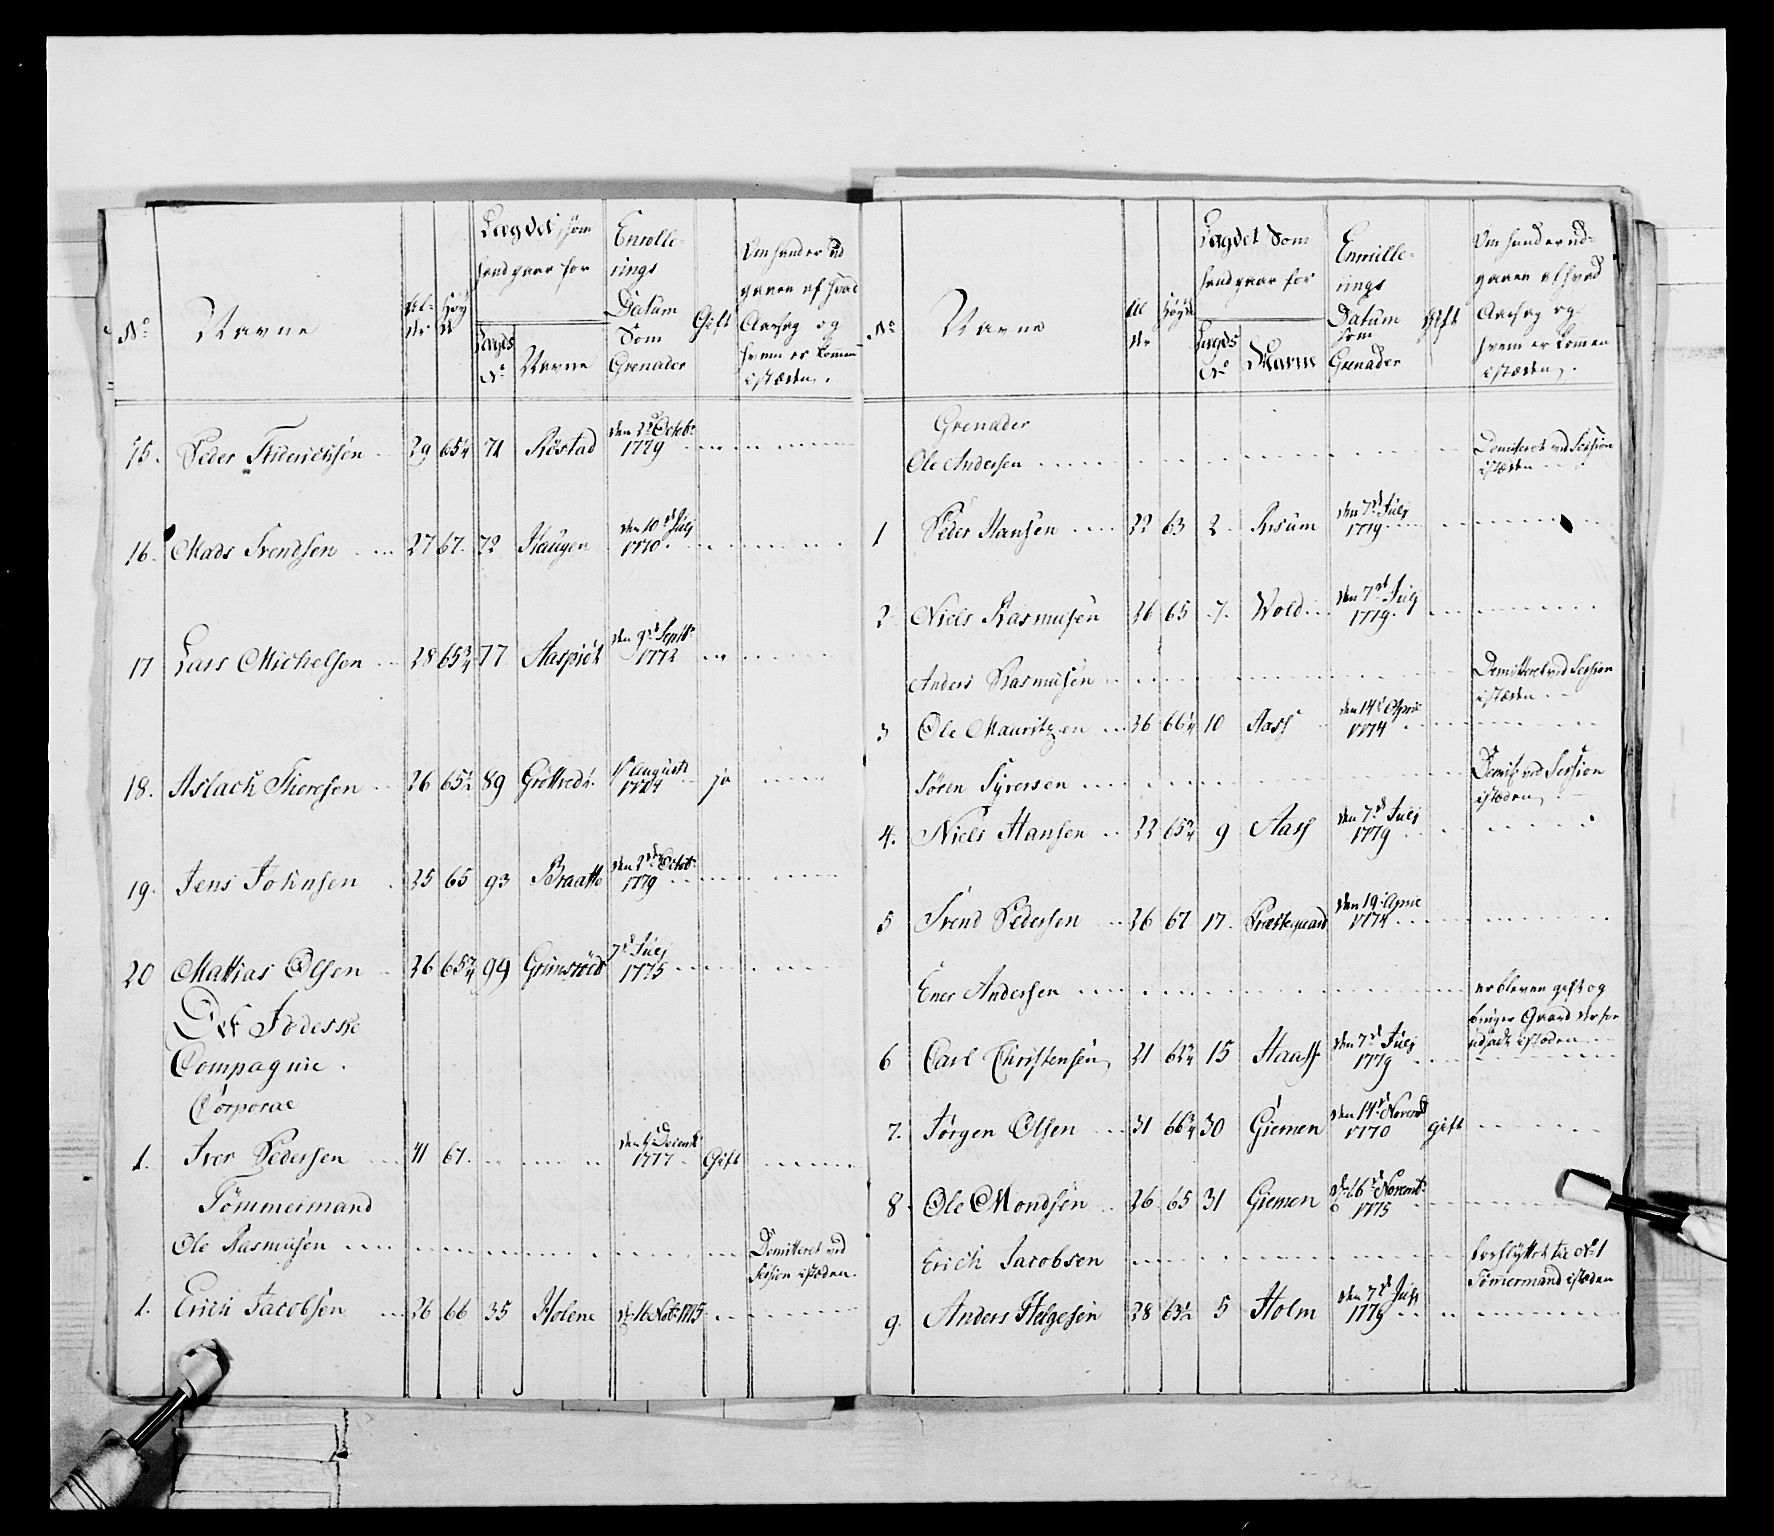 No Navne Al- der Høy de Lægdet, som hand gaar for Lægds No Navne Enrolle- rings Datum Som Grenader Gift Om hand er ud gaaen af hvad Aarsag og hvem er kommen i stæden.
15. Peder Friderichsen 29 65¼ 71 Röstad den 2d Octobr 1779
16. Mads Svendsen 27 67. 72 Haugen den 10d Julij 1770.
17 Lars Michelsen 28 65¾ 77 den 9d Septbr 1772
18. Aslach Thoresen 26 65½ 89 1d Augusti 1774 ja
19. Jens Johnsen 25 65 93 Braatte den 2d Octob. 1779
20 Mattias Olsen 26 65¾ 99 Grimsröed 7d Julij 1775
Det Fodesske
Compagnie.
Corporal
1. Iver Pedersen 41 67. den Decemb. 1777 Gift
Tömmermand
Ole Rasmusen Demitteret ved Session i stæden.
1. Erich Jacobsen 26 66 35 Holene d. 16 Nob. 1775
No Navne Al der Høyde Lægdet Som hand gaar for Lægds No Navne Enrulle- rings Datum som Grenader Gift Om hand er ud- gaaen af hvad Aarsag og hvem er kommen i stæden.
Grenader
Ole Andersen Demiteret ved Session i stæden
1 Peder Hansen 22 63 2 Risum den 7d Julij 1779
2 Niels Rasmusen 26 65 7. Wold den 7d Julij 1779.
Anders Rasmusen Demitteret ved Session i stæden
3 Ole Mauritzen 26 66¼ 10 Aass den 14d April 1774
Sören Syversen Demit ved Session i stæden
4. Niels Hansen 22 65¾ 9 Aass den 7d Julij 1779
5 Svend Pedersen 26 67 17. Præstegaard den 19. April 1774
Ener Andersen er bleven gift og bruger Gaard derfor udsadt i stæden
6 Carl Christensen 21 62¾ 15 Haass den 7d Julij 1779
7. Jörgen Olsen 31 66¾ 30 Giemen den 14d Novembr 1770 gift
8 Ole Mondsen 26 65 31 Giemen d. 16d Novembr 1775
Erich Jacobsen forflÿttet til No 1 Tömmermand i stæden
9. Anders Helgesen 28 63½ 5 Holm den 7d Julij 1779